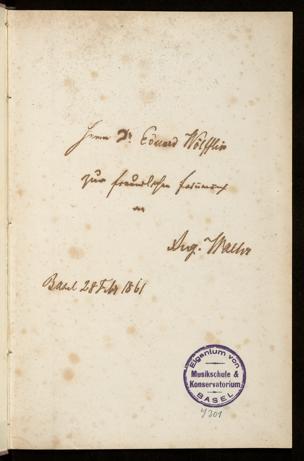 Herrn Dr Eduard Wölfflin
zur freundlichen Erinnerung
an
Aug. Walter
Basel 28 Febr 1861
Eigentum von
Musikschule &
Konservatorium
BASEL